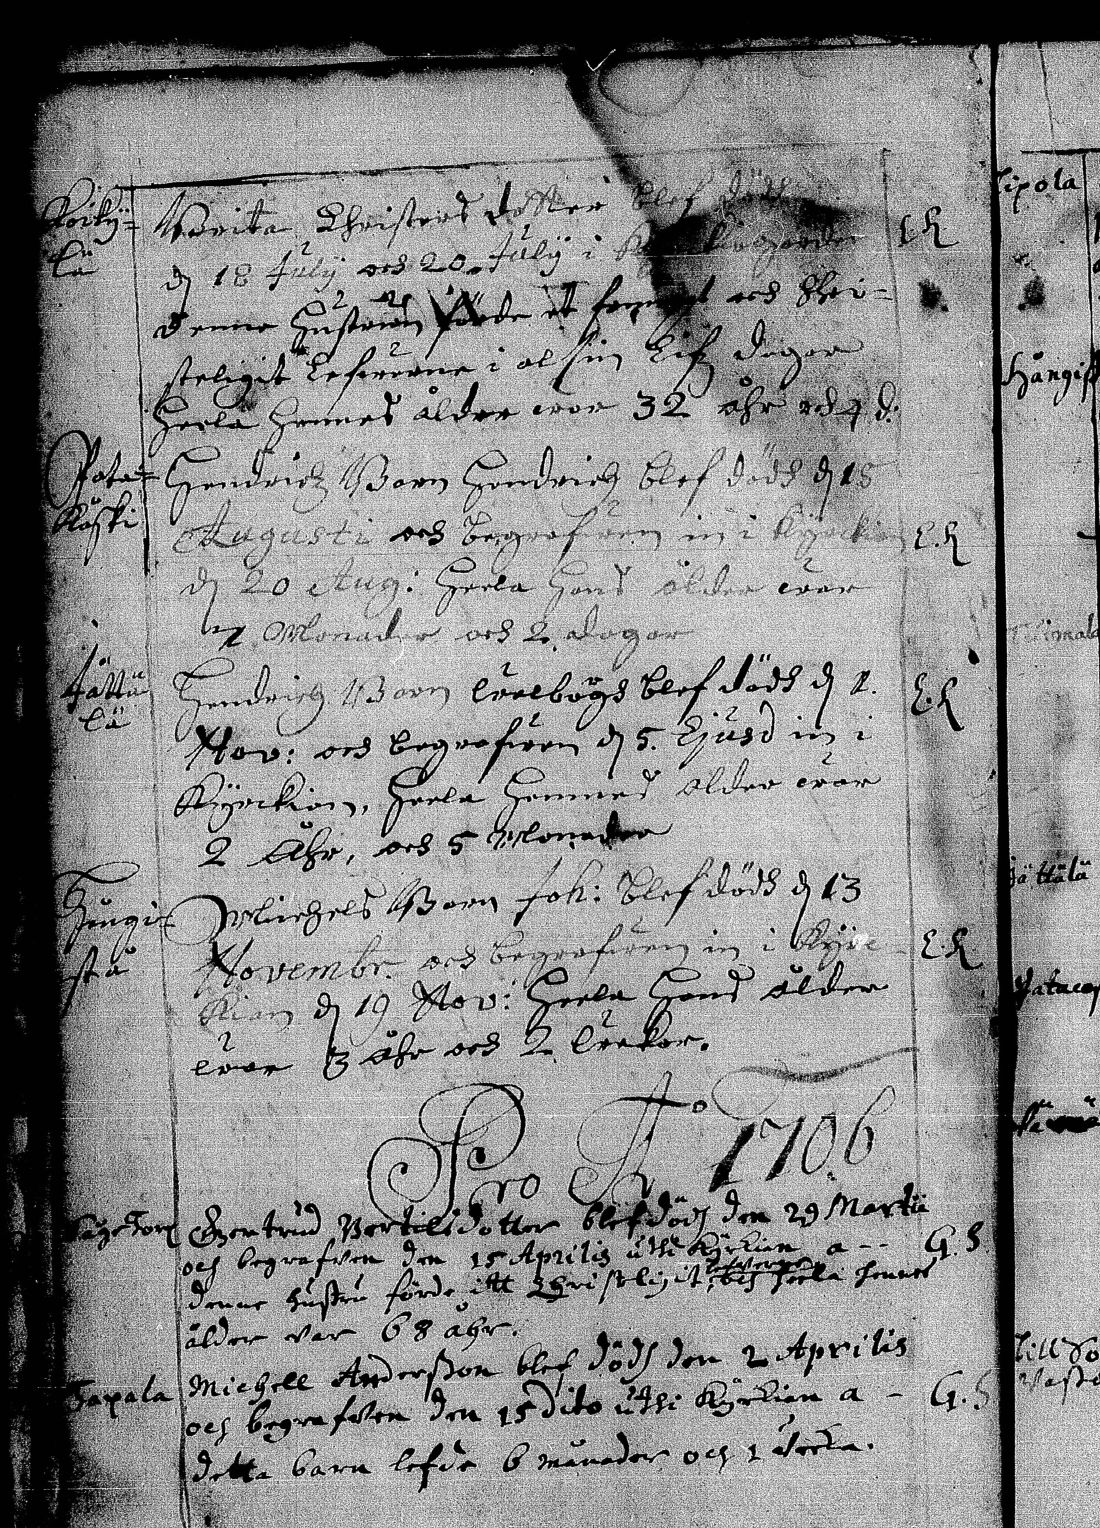 Koiky=
lä
Brita Christers dotter blef dödh
d 18 July och 20 July i Kyrckiogården
E.K
denne Hustrun förde et fromt och Chri=
steligit Lefwerne i al sin Lifz dagar
Heela Hennes ålder war 32 åhr och 4 d.
Pata=
koski
Hendrichz Barn Hendrich blef dödh d 18
Augusti och begrafwen in i Kyrckian
E.K
d 20 Aug: Heela Hans ålder war
Monader och 2 dagar
Jättü
lä
Hendrich Barn Walbogh blef dödh d 2.
E.K
Nov: och begrafwen d 5. Ejusd in i
Kyrckian, Heela Hennes ålder war
2 Åhr, och 5 Monader
Hungi=
sta
Michels Barn Joh: blef dödh d 13
Novembr. och begrafwen in i Kyrc-
E.K
kian d 19 Nov: Heela Hans ålder
war 3 Åhr och 2 Wekor.
Pro Aº 1706
Gertrud Bertilsdotter blef dödh den 29 Martii
och begrafven den 15 Aprilis uthi Kyrkian a --
G.S
denne hustru förde itt Christeligit lefverne och heela hennes
ålder var 68 åhr.
Tapala
Michell Andersson blef dödh den 2 Aprilis
och begrafven den 15 dito uthi Kyrkian a -
G.S
detta barn lefde 6 månader och 1 Vecka.
Tipola
Hångis
Jättälä
Till So